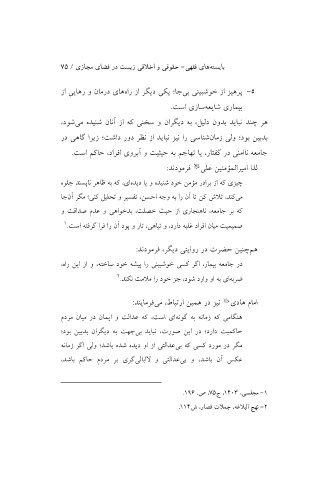 بایسته‌های فقهی - حقوقی و اخلاقی زیست در فضای مجازی / ۷۵
۵- پرهیز از خوشبینی بی‌جا؛ یکی دیگر از راه‌های درمان و رهایی از
بیماری شایعه‌سازی است.
هر چند نباید بدون دلیل، به دیگران و سخنی که از آنان شنیده می‌شود،
بدبین بود؛ ولی زمان‌شناسی را نیز نباید از نظر دور داشت؛ زیرا گاهی در
جامعه ناامنی در گفتار، یا تهاجم به حیثیت و آبروی افراد، حاکم است.
لذا امیرالمؤمنین علی فرمودند:
چیزی که از برادر مؤمن خود شنیده و یا دیده‌ای، که به ظاهر ناپسند جلوه
می‌کند، تلاش کن تا آن را به وجه احسن، تفسیر و تحلیل کنی؛ مگر آن‌جا
که بر جامعه، ناهنجاری از حیث خصلت، بدخواهی و عدم صداقت و
صمیمیت میان افراد غلبه دارد، و تباهی، تار و پود آن را فرا گرفته است.۱
هم‌چنین حضرت در روایتی دیگر، فرمودند:
در جامعه بیمار، اگر کسی خوشبینی را پیشه خود ساخته، و از این راه،
ضربه‌ای به او وارد شود، جز خود را ملامت نکند.۲
امام هادی نیز در همین ارتباط، می‌فرمایند:
هنگامی که زمانه به گونه‌ای است، که عدالت و ایمان در میان مردم
حاکمیت دارد؛ در این صورت، نباید بی‌جهت به دیگران بدبین بود؛
مگر در مورد کسی که بی‌عدالتی از او دیده شده باشد؛ ولی اگر زمانه
عکس آن باشد، و بی‌عدالتی و لاابالی‌گری بر مردم حاکم باشد،
۱- مجلسی، ۱۴۰۳، ج۷۵، ص۱۹۶.
۲- نهج البلاغه، جملات قصار، ش۱۱۴.